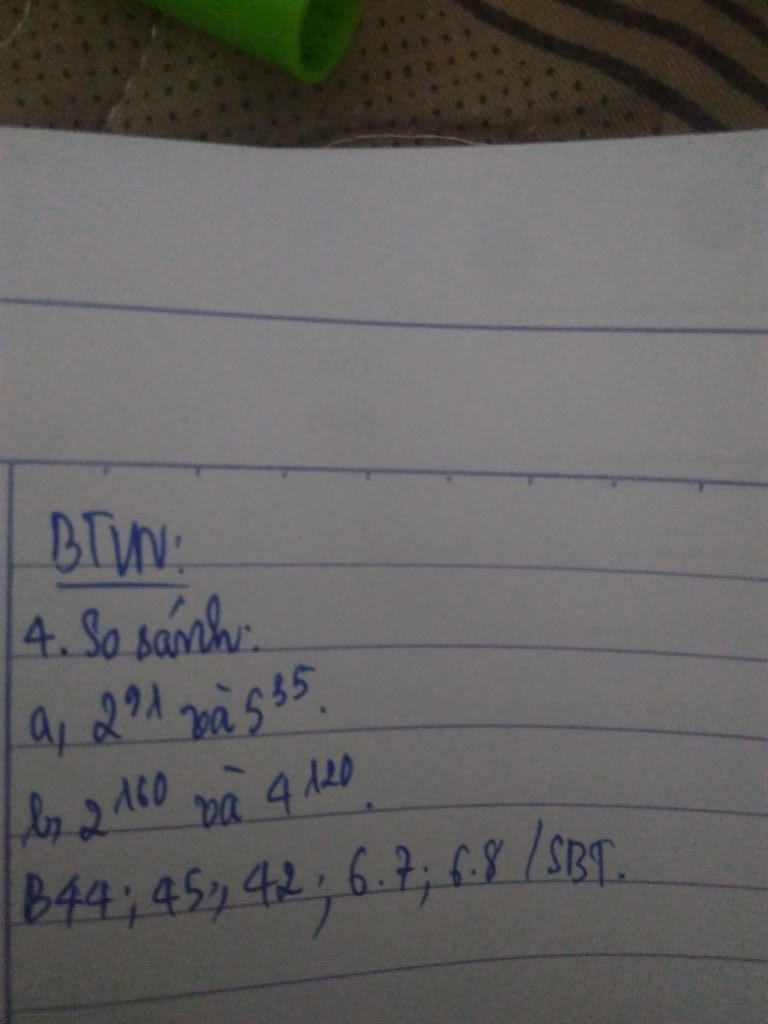 BTVN:
4. So sánh:
a, 2⁹¹ và 5³⁵.
b, 2¹⁶⁰ và 4¹²⁰.
B44; 45; 42; 6.7; 6.8 /SBT.